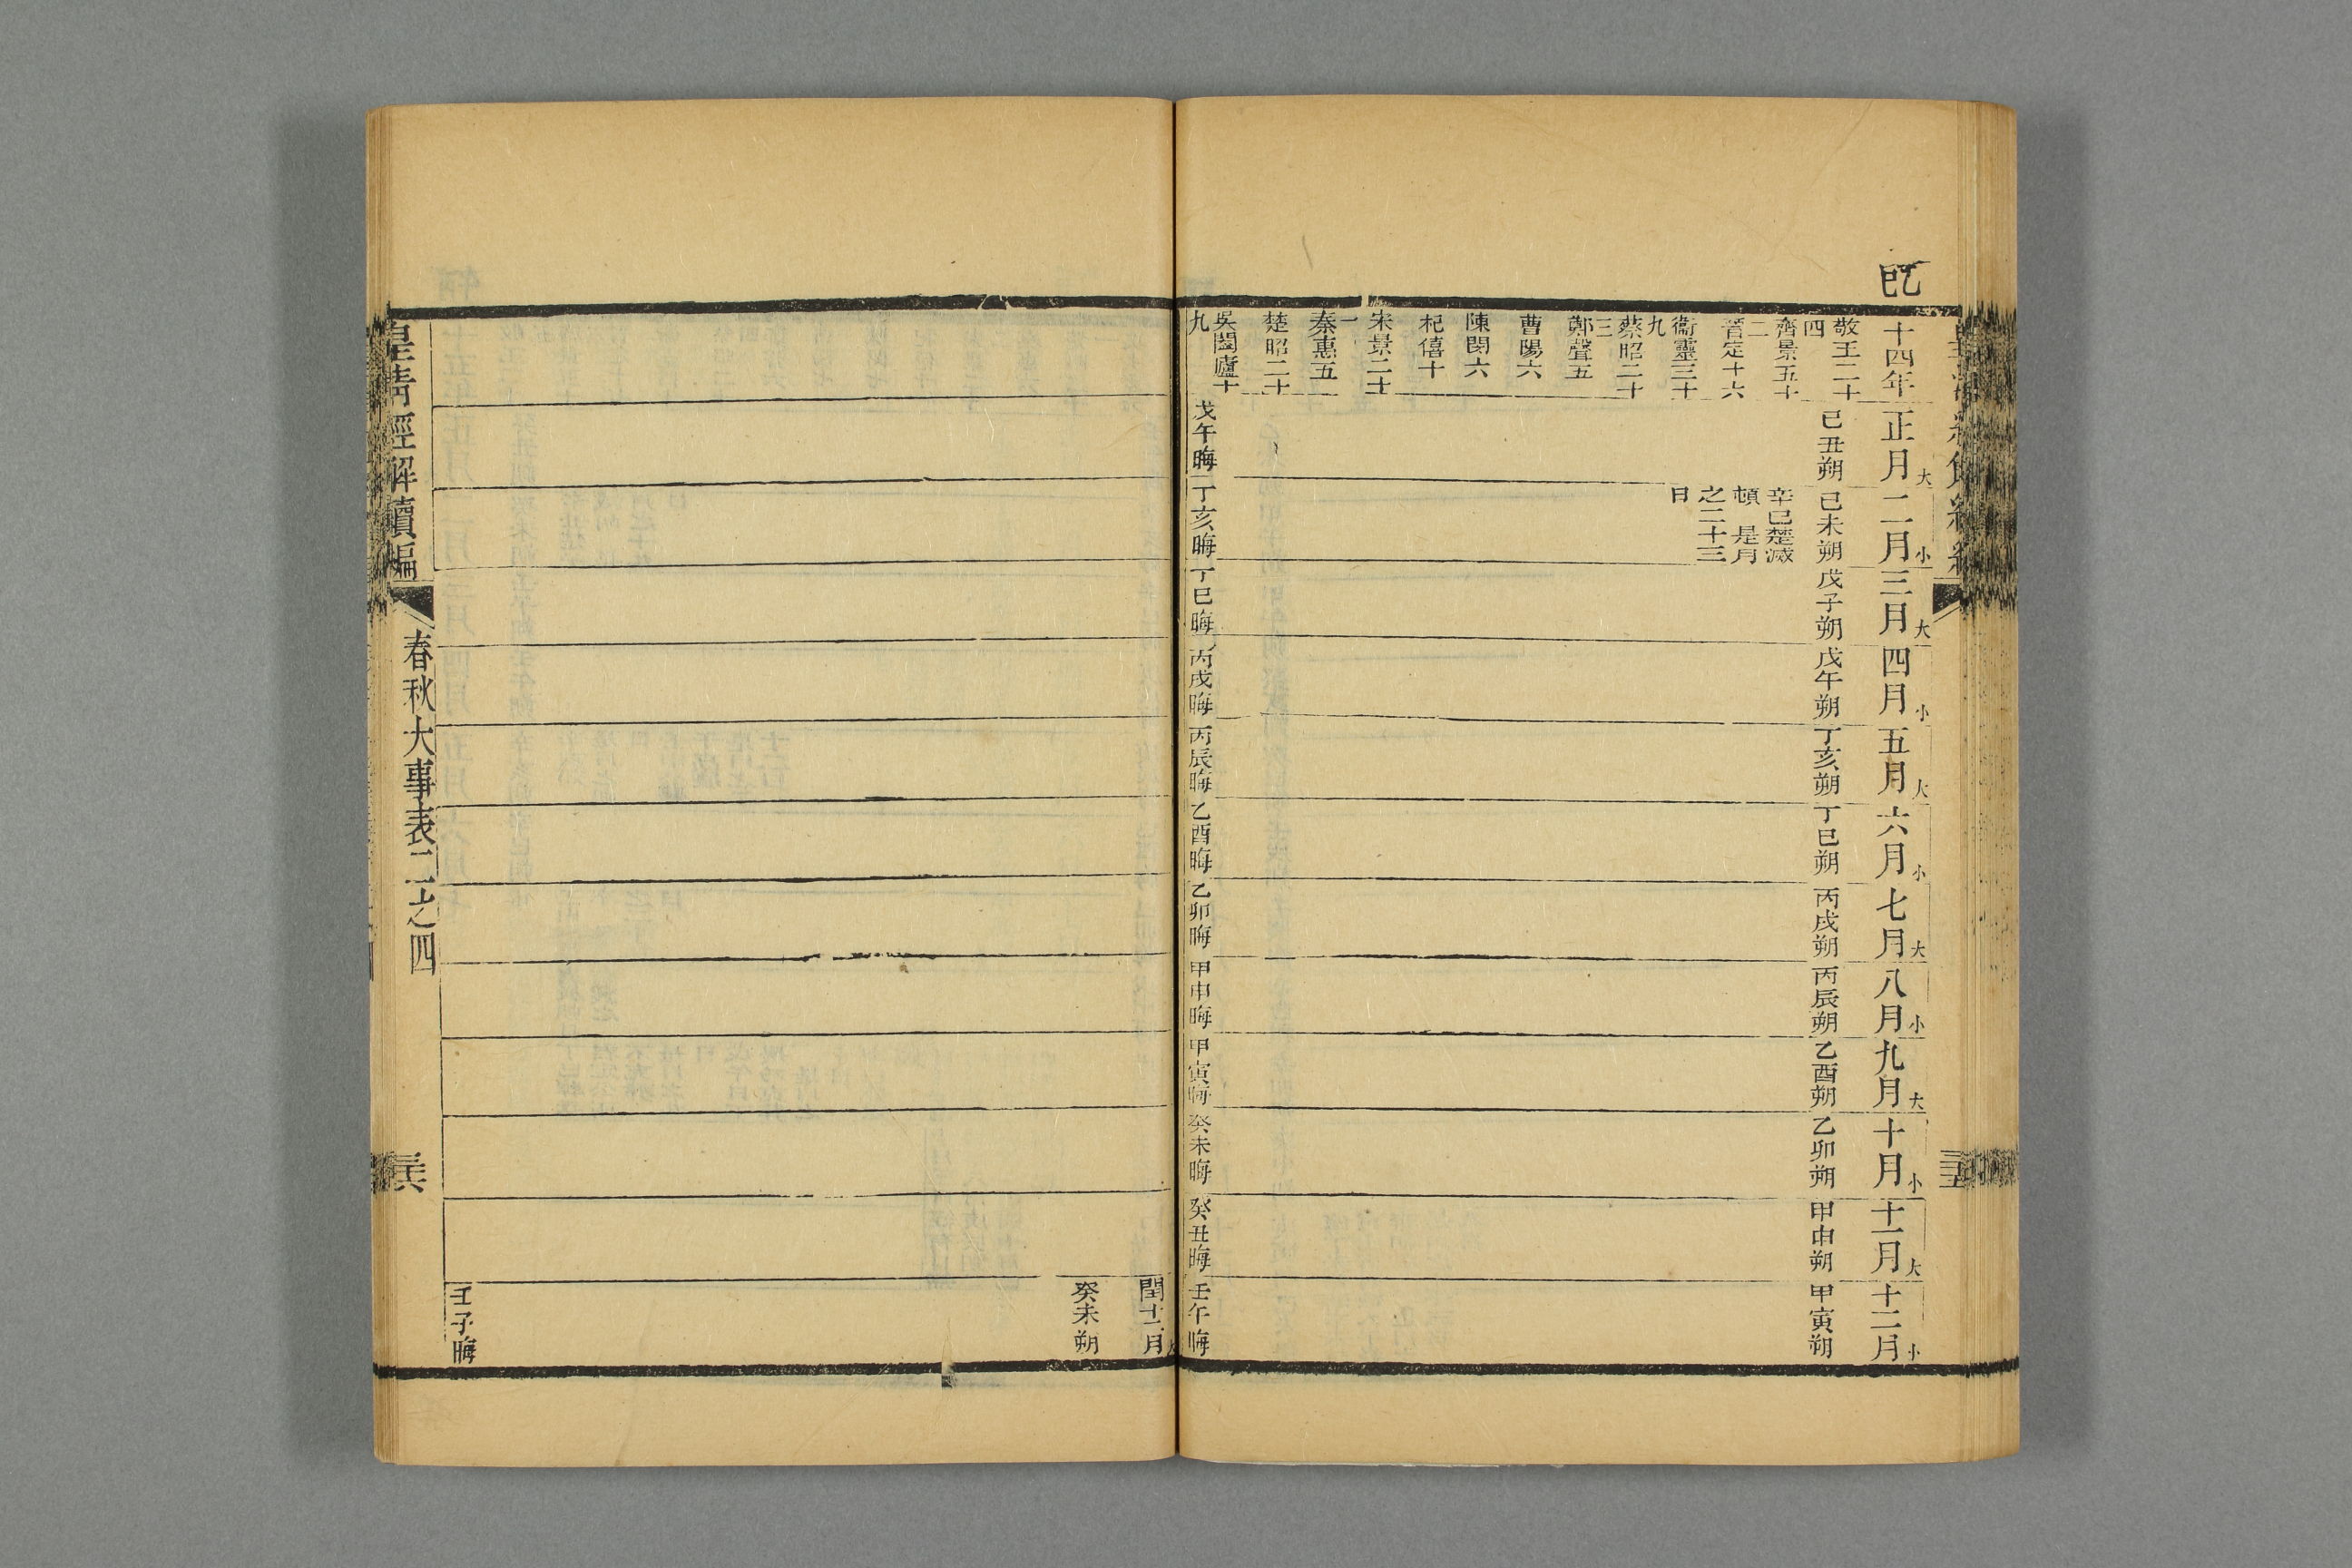 乙巳
十四年
正月大
二月小
三月大
四月小
五月大
六月小
七月大
八月小
九月大
十月小
十一月大
十二月小
敬王二十
四
齊景五十
二
晉定十六
衞靈三十
九
蔡昭二十
三
鄭聲五
曹陽六
陳閔六
杞僖十
宋景二十
一
秦惠五
楚昭二十
吳闔廬十
九
己丑朔
戊午晦
己未朔
辛巳楚滅
頓 是月
之二十三
日
丁亥晦
戊子朔
丁巳晦
戊午朔
丙戌晦
丁亥朔
丙辰晦
丁巳朔
乙酉晦
丙戌朔
乙卯晦
丙辰朔
甲申晦
乙酉朔
甲寅晦
乙卯朔
癸未晦
甲申朔
癸丑晦
甲寅朔
壬午晦
閏十二月大
癸未朔
壬子晦
皇清經解續編
春秋大事表二之四